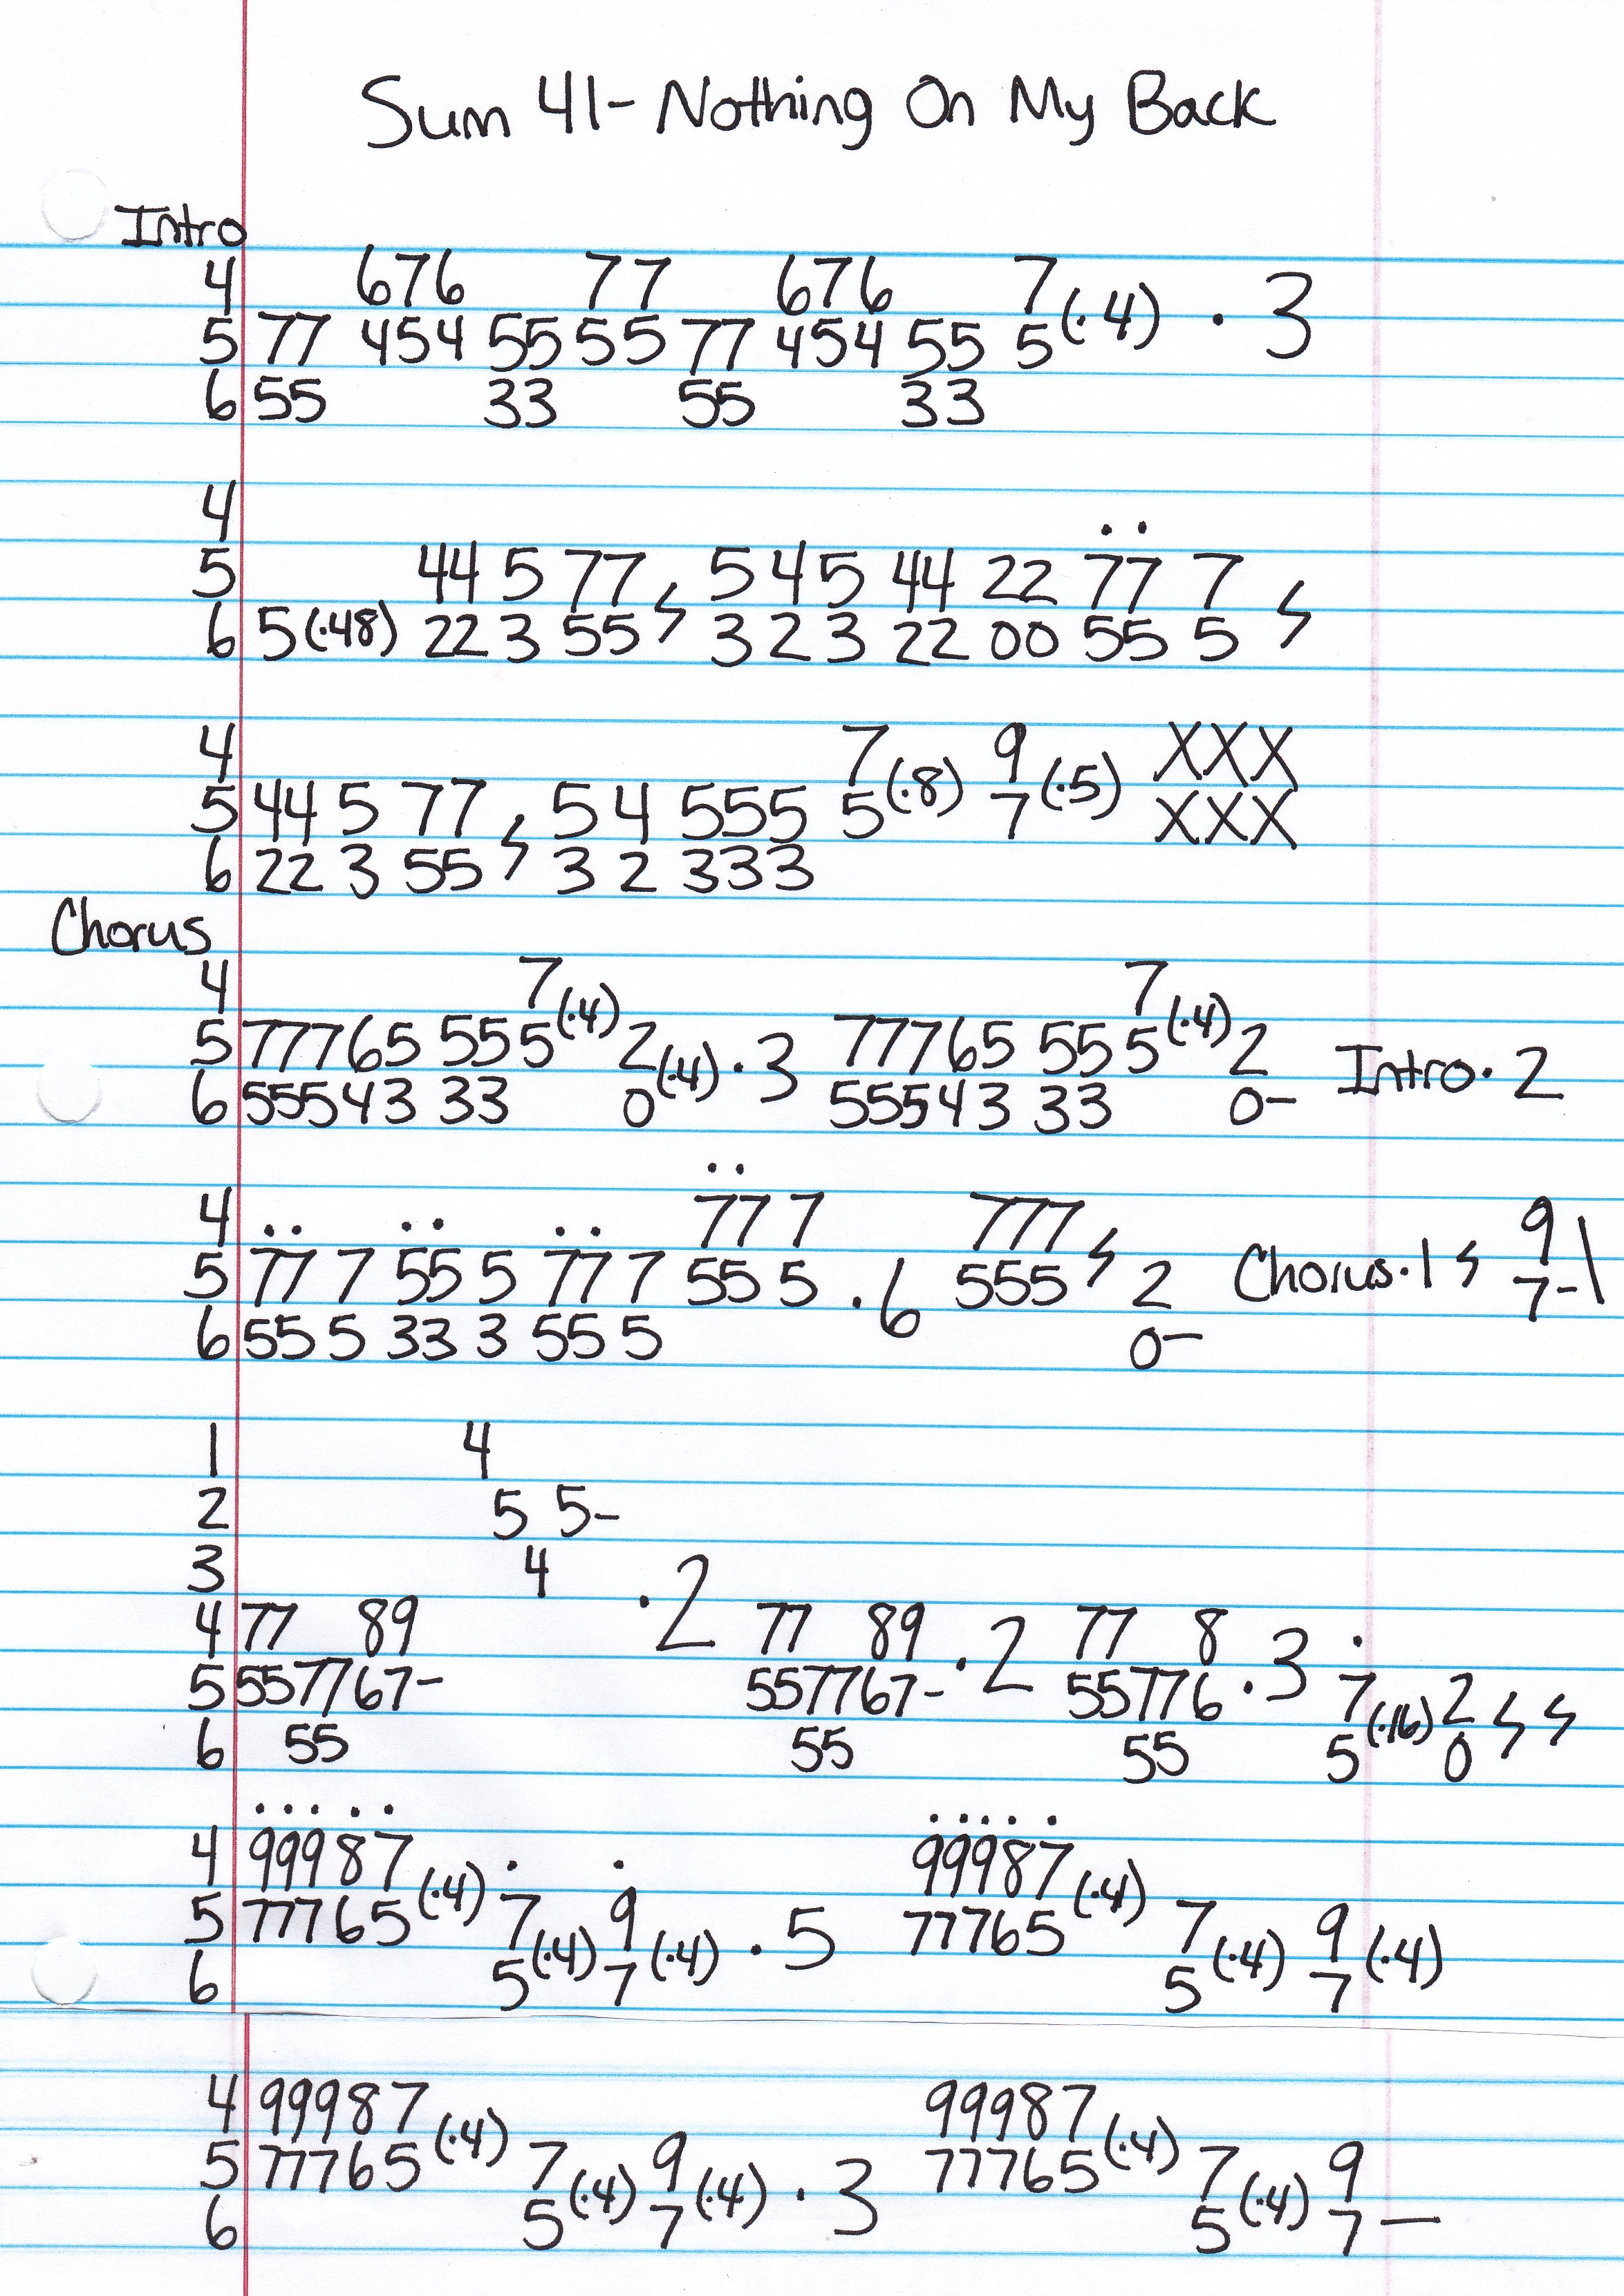 Sum 41- Nothing On My Back
Intro
4 676 77 676 7
5 77 454 55 55 77 454 55 5 (·4) · 3
6 55 33 55 33
4 · ·
5 44 5 77 , 5 4 5 44 22 77 7
6 5 (·48) 22 3 55 3 2 3 22 00 55 5
4 7 9 XXX
5 44 5 77 , 5 4 555 5 (·8) 7 (·5) XXX
6 22 3 55 3 2 333
Chorus
4 7 7
5 77765 55 5 (·4) 2 (·4) · 3 77765 55 5 (·4) 2 Intro · 2
6 55543 33 0 55543 33 0-
· ·
4 · · · · · · 77 7 777 9
5 77 7 55 5 77 7 55 5 · 6 555 2 Chorus · 1 7-\
6 55 5 33 3 55 5 0-
1 4
2 5 5-
3 4 · 2
4 77 89 77 89 · 2 77 8 · 3 ·
5 557767- 557767- 55776 7 (·16) 2
6 55 55 55 5 0
· · · · · · · · · ·
4 99987 (·4) · · 99987 (·4)
5 77765 7 (·4) 9 (·4) · 5 77765 7 (·4) 9 (·4)
6 5 7 5 7
4 99987 (·4) 99987 (·4)
5 77765 7 (·4) 9 (·4) · 3 77765 7 (·4) 9
6 5 7 5 7 -